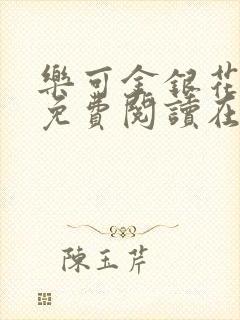 樂可金銀花
免費閱讀在
陳玉芹